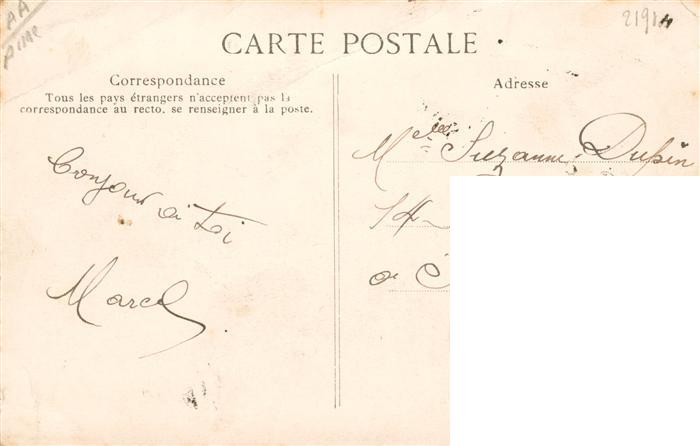 AA
21914
CARTE POSTALE
Correspondance
Tous les pays étrangers n'acceptent pas la
correspondance au recto, se renseigner à la poste.
Adresse
Bonjour à toi
Marcel
Melle Suzanne Dupin